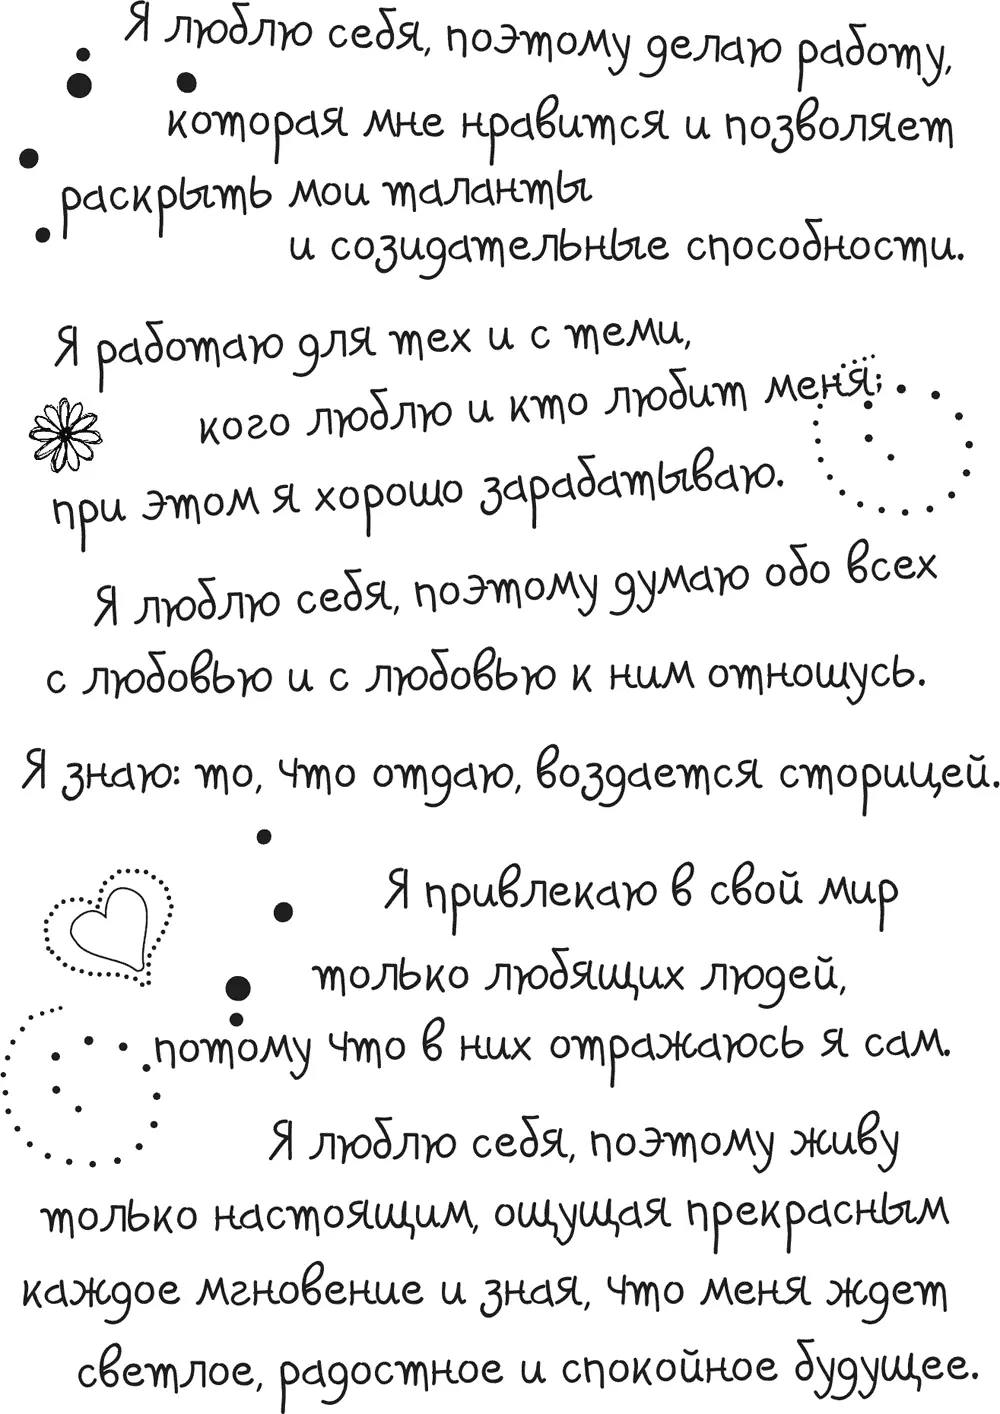 Я люблю себя, поэтому делаю работу,
которая мне нравится и позволяет
раскрыть мои таланты
и созидательные способности.
Я работаю для тех и с теми,
кого люблю и кто любит меня;
при этом я хорошо зарабатываю.
Я люблю себя, поэтому думаю обо всех
с любовью и с любовью к ним отношусь.
Я знаю: то, что отдаю, воздается сторицей.
Я привлекаю в свой мир
только любящих людей,
потому что в них отражаюсь я сам.
Я люблю себя, поэтому живу
только настоящим, ощущая прекрасным
каждое мгновение и зная, что меня ждет
светлое, радостное и спокойное будущее.